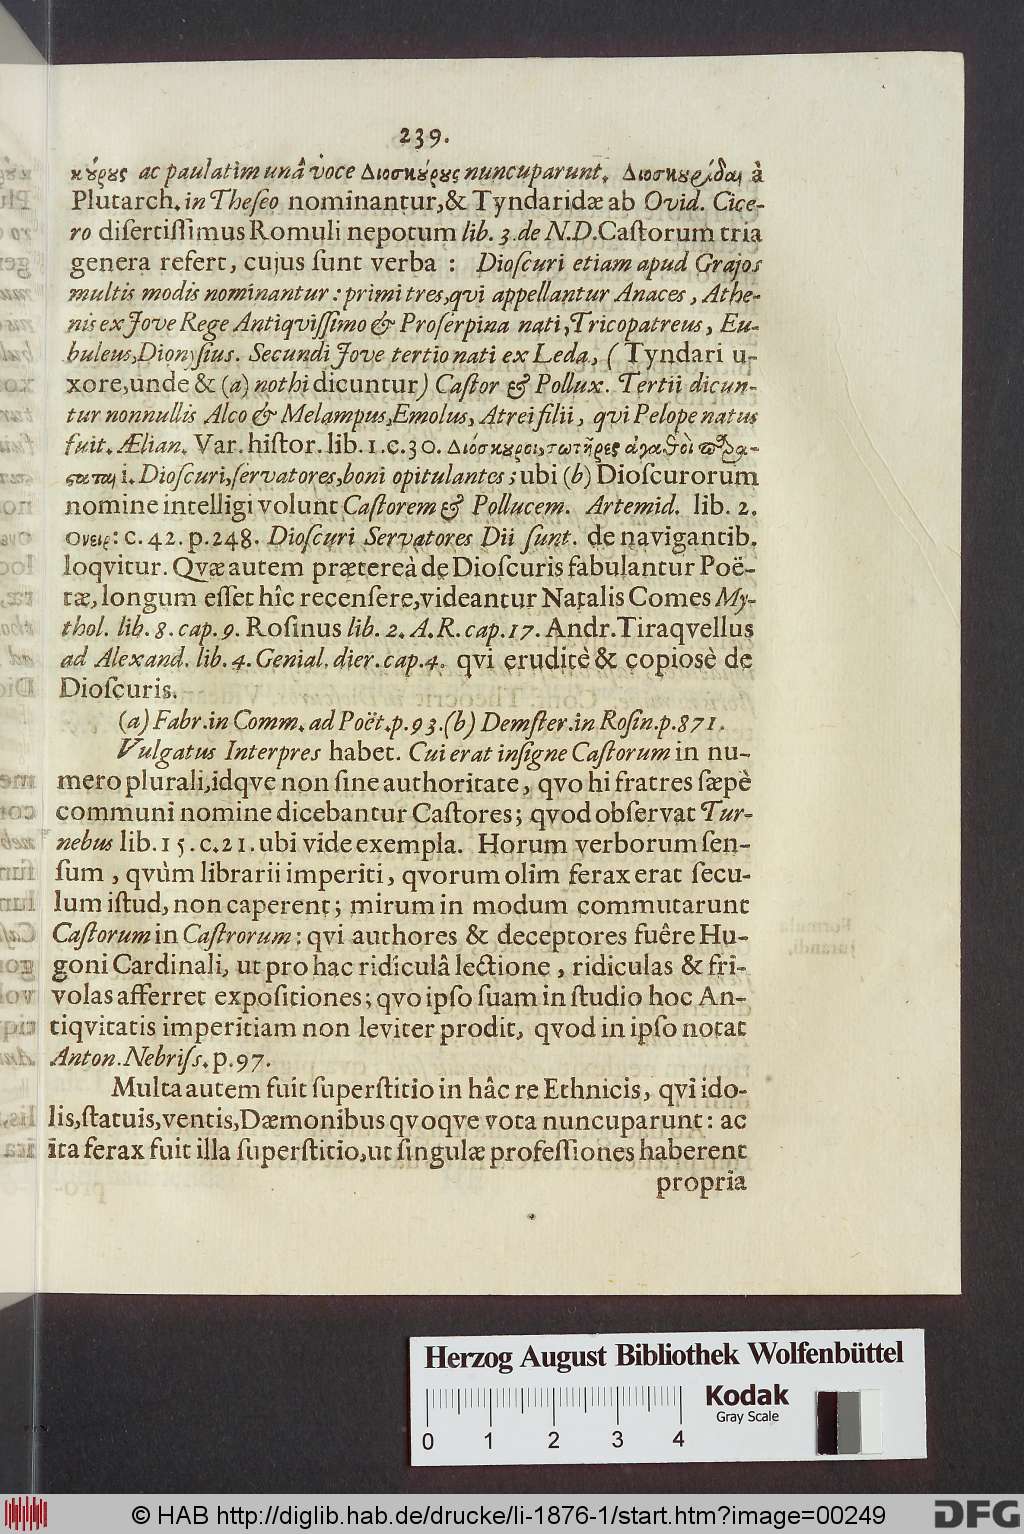 239.
κύρυς ac paulatim unâ voce Διοσκύρυς nuncuparunt. Διοσκυρίδαι à
Plutarch. in Theſeo nominantur, & Tyndaridæ ab Ovid. Cice-
ro diſertiſſimus Romuli nepotum lib. 3. de N.D. Caſtorum tria
genera refert, cujus ſunt verba : Dioſcuri etiam apud Grajos
multis modis nominantur : primi tres, qvi appellantur Anaces, Athe-
nis ex Jove Rege Antiqviſſimo & Proſerpina nati, Tricopatreus, Eu-
buleus, Dionyſius. Secundi Jove tertio nati ex Leda, ( Tyndari u-
xore, unde & (a) nothi dicuntur) Caſtor & Pollux. Tertii dicun-
tur nonnullis Alco & Melampus, Emolus, Atrei filii, qvi Pelope natus
fuit. Ælian. Var. hiſtor. lib. 1. c. 30. Διόσκυροι, σωτῆρες ἀγαθοὶ
i. Dioſcuri, ſervatores, boni opitulantes ; ubi (b) Dioſcurorum
nomine intelligi volunt Caſtorem & Pollucem. Artemid. lib. 2.
Ονειρ: c. 42. p. 248. Dioſcuri Servatores Dii ſunt. de navigantib.
loqvitur. Qvæ autem prætereà de Dioſcuris fabulantur Poë-
tæ, longum eſſet hîc recenſere, videantur Natalis Comes My-
thol. lib. 8. cap. 9. Roſinus lib. 2. A. R. cap. 17. Andr. Tiraqvellus
ad Alexand. lib. 4. Genial. dier. cap. 4. qvi eruditè & copiosè de
Dioſcuris.
(a) Fabr. in Comm. ad Poët. p. 93. (b) Demſter. in Roſin. p. 871.
Vulgatus Interpres habet. Cui erat inſigne Caſtorum in nu-
mero plurali, idqve non ſine authoritate, qvo hi fratres ſæpè
communi nomine dicebantur Caſtores ; qvod obſervat Tur-
nebus lib. 15. c. 21. ubi vide exempla. Horum verborum ſen-
ſum , qvùm librarii imperiti, qvorum olim ferax erat ſecu-
lum iſtud, non caperent ; mirum in modum commutarunt
Caſtorum in Caſtrorum ; qvi authores & deceptores fuêre Hu-
goni Cardinali, ut pro hac ridiculâ lectione , ridiculas & fri-
volas afferret expoſitiones ; qvo ipſo ſuam in ſtudio hoc An-
tiqvitatis imperitiam non leviter prodit, qvod in ipſo notat
Anton. Nebriſſ. p. 97.
Multa autem fuit ſuperſtitio in hâc re Ethnicis, qvi ido-
lis, ſtatuis, ventis, Dæmonibus qvoqve vota nuncuparunt : ac
ita ferax fuit illa ſuperſtitio, ut ſingulæ profeſſiones haberent
propria
Herzog August Bibliothek Wolfenbüttel
0 1 2 3 4
Kodak
Gray Scale
© HAB http://diglib.hab.de/drucke/li-1876-1/start.htm?image=00249
DFG